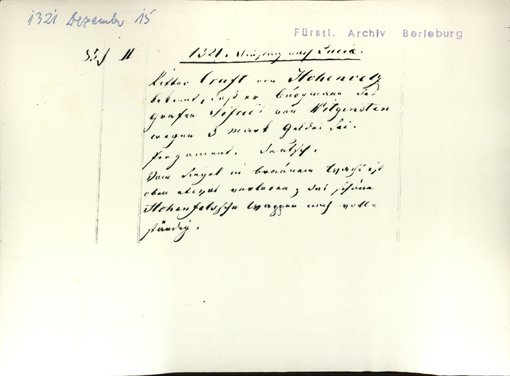 1321 Dezember 15
Fürstl. Archiv Berleburg
55f H
1321. Dinstag nach Lucia.
Ritter Craft von Hohenvelz
bekennt, daß er Burgmann des
Grafen von Witgenstein
wegen 3 Mark Geldes sei.
Pergament. Deutsch.
Vom Siegel in braunem Wachs ist
oben etwas verloren; das schöne
Hohenfelssche Wappen noch voll=
ständig.